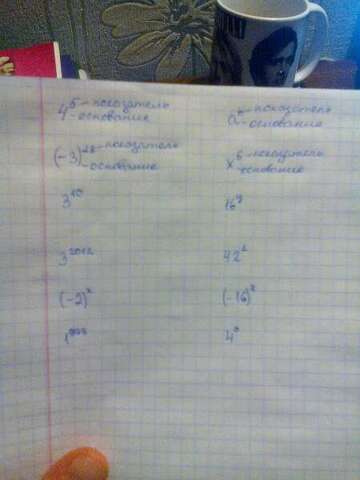 4⁵ - показатель
- основание
aⁿ - показатель
- основание
(-3)²⁸ - показатель
- основание
x⁶ - показатель
- основание
3¹⁰
3²⁰¹²
42¹
(-2)ˣ
4ᵃ